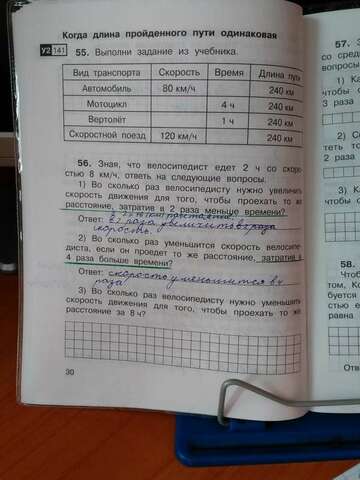 Когда длина пройденного пути одинаковая
У2 141 55. Выполни задание из учебника.
Вид транспорта Скорость Время Длина пути
Автомобиль 80 км/ч 240 км
Мотоцикл 4 ч 240 км
Вертолёт 1 ч 240 км
Скоростной поезд 120 км/ч 240 км
56. Зная, что велосипедист едет 2 ч со скоро-
стью 8 км/ч, ответь на следующие вопросы.
1) Во сколько раз велосипедисту нужно увеличить
скорость движения для того, чтобы проехать то же
расстояние, затратив в 2 раза меньше времени?
Ответ: в 2 раза увеличить
скорость.
2) Во сколько раз уменьшится скорость велосипе-
диста, если он проедет то же расстояние, затратив в
4 раза больше времени?
Ответ: скорость уменьшится в 4
раза
3) Во сколько раз велосипедисту нужно уменьшить
скорость движения для того, чтобы проехать то же
расстояние за 8 ч?
30
57.
со сред
вопросы
1) Ка
чтобы
3 раза
2)
4
3) К
чтобы
58.
Чтоб
том, Ко
буется
3
равна
Отв